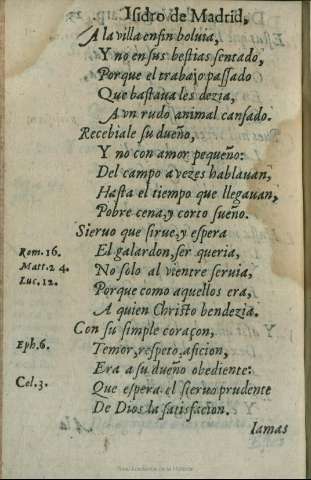 Isidro de Madrid,
A la villa enfin boluia,
Y no en sus bestias sentado,
Porque el trabajo passado
Que bastaua les dezia,
A vn rudo animal cansado.
Recebiale su dueño,
Y no con amor pequeño:
Del campo a vezes hablauan,
Hasta el tiempo que llegauan,
Pobre cena, y corto sueño.
Sieruo que sirue, y espera
Rom. 16. El galardon, ser queria,
Matt. 24. No solo al vientre seruia,
Luc. 12. Porque como aquellos era,
A quien Christo bendezia.
Con su simple coraçon,
Eph. 6. Temor, respeto, aficion,
Era a su dueño obediente:
Col. 3. Que espera el sieruo prudente
De Dios la satisfacion.
Iamas
Real Academia de la Historia